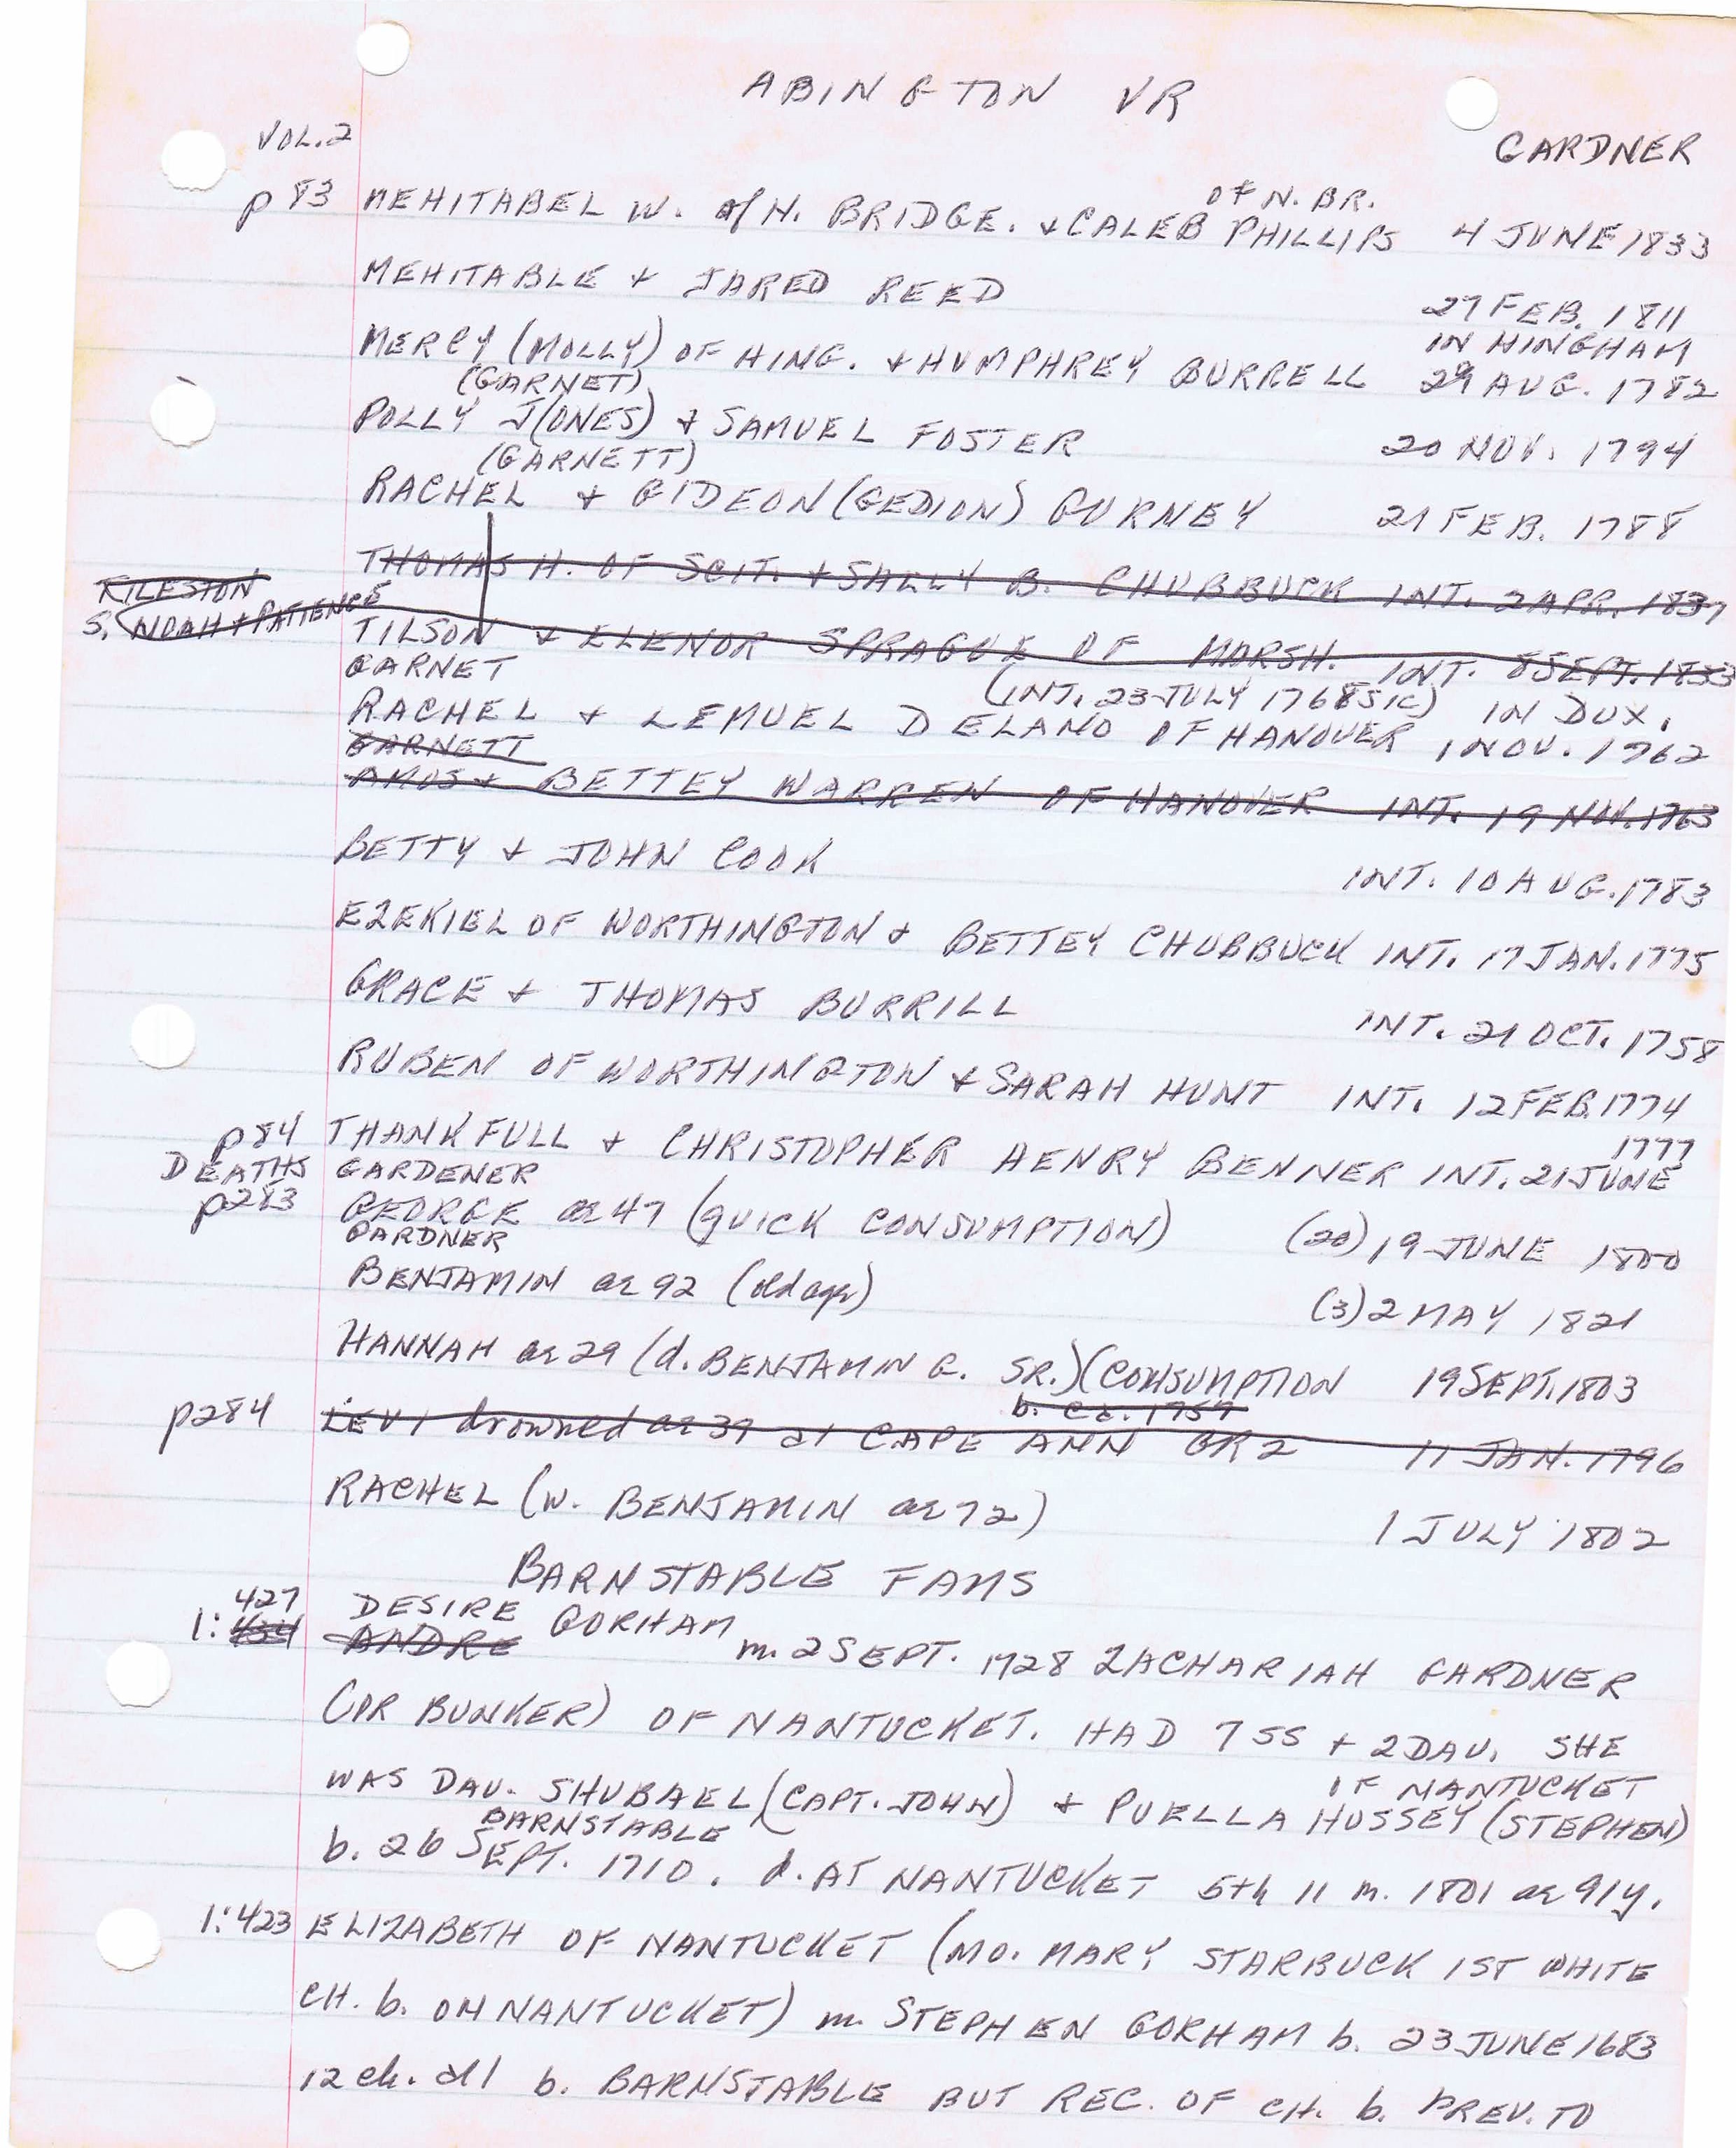 ABINGTON VR
VOL. 2
GARDNER
OF N. BR.
p 83 MEHITABEL W. of N. BRIDGE. + CALEB PHILLIPS 4 JUNE 1833
MEHITABLE + JARED REED 27 FEB. 1811
IN HINGHAM
MERCY (MOLLY) OF HING. + HUMPHREY BURRELL 29 AUG. 1782
(GARNET)
POLLY J(ONES) + SAMUEL FOSTER 20 NOV. 1794
(GARNETT)
RACHEL + GIDEON (GEDION) GURNEY 21 FEB. 1788
THOMAS H. OF SCIT. + SALLY B. CHUBBUCK INT. 2 APR. 1837
TILESTON
S. NOAH + PATIENCE
TILSON + ELENOR SPRAGUE OF MARSH. INT. 8 SEPT. 1833
GARNET
(INT. 23 JULY 1768 SIC) IN DUX.
RACHEL + LEMUEL DELANO OF HANOVER 1 NOV. 1762
GARNETT
AMOS + BETTEY WARREN OF HANOVER INT. 19 NOV. 1763
BETTY + JOHN COOK INT. 10 AUG. 1783
EZEKIEL OF WORTHINGTON + BETTEY CHUBBUCK INT. 17 JAN. 1775
GRACE + THOMAS BURRILL INT. 21 OCT. 1758
RUBEN OF WORTHINGTON + SARAH HUNT INT. 12 FEB. 1774
1777
p 84 THANKFULL + CHRISTOPHER HENRY BENNER INT. 21 JUNE
DEATHS GARDENER
p283 GEORGE ae 47 (QUICK CONSUMPTION) (20) 19 JUNE 1800
GARDNER
BENJAMIN ae 92 (old age) (3) 2 MAY 1821
HANNAH ae 29 (d. BENJAMIN G. SR.) (CONSUMPTION 19 SEPT. 1803
b. ca. 1757
p284 LEVI drowned ae 39 at CAPE ANN GR2 11 JAN. 1796
RACHEL (W. BENJAMIN ae 72) 1 JULY 1802
BARNSTABLE FAMS
427 DESIRE
1: 434 ANDRE GORHAM m. 2 SEPT. 1728 ZACHARIAH GARDNER
(OR BUNKER) OF NANTUCKET. HAD 7 SS + 2 DAU. SHE
OF NANTUCKET
WAS DAU. SHUBAEL (CAPT. JOHN) + PUELLA HUSSEY (STEPHEN)
BARNSTABLE
b. 26 SEPT. 1710. d. AT NANTUCKET 5th 11 m. 1801 ae 91y.
1:423 ELIZABETH OF NANTUCKET (MO. MARY STARBUCK 1ST WHITE
CH. b. ON NANTUCKET) m. STEPHEN GORHAM b. 23 JUNE 1683
12 ch. all b. BARNSTABLE BUT REC. OF CH. b. PREV. TO